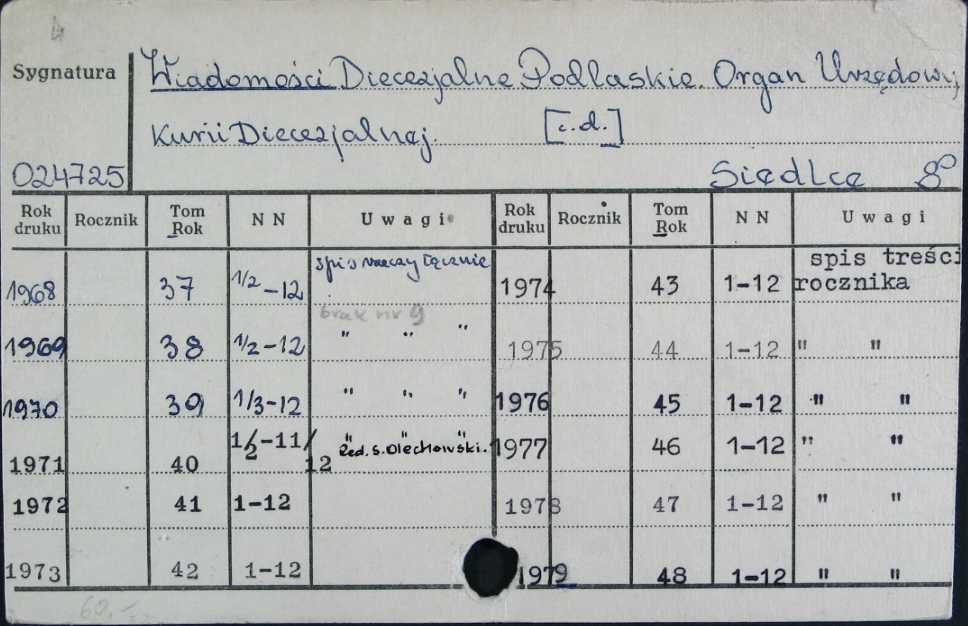 Sygnatura
Wiadomości Diecezjalne Podlaskie. Organ Urzędowy
Kurii Diecezjalnej. [c.d.]
024725
Siedlce 8°
Rok druku Rocznik Tom Rok NN Uwagi Rok druku Rocznik Tom Rok NN Uwagi
1968 37 1/2-12 spis rzeczy łącznie 1974 43 1-12 spis treści rocznika
brak nr 9
1969 38 1/2-12 " " " 1975 44 1-12 " "
1970 39 1/3-12 " " " 1976 45 1-12 " "
1971 40 1/2-11/12 " " " Red. S. Olechowski. 1977 46 1-12 " "
1972 41 1-12 1978 47 1-12 " "
1973 42 1-12 1979 48 1-12 " "
60.-